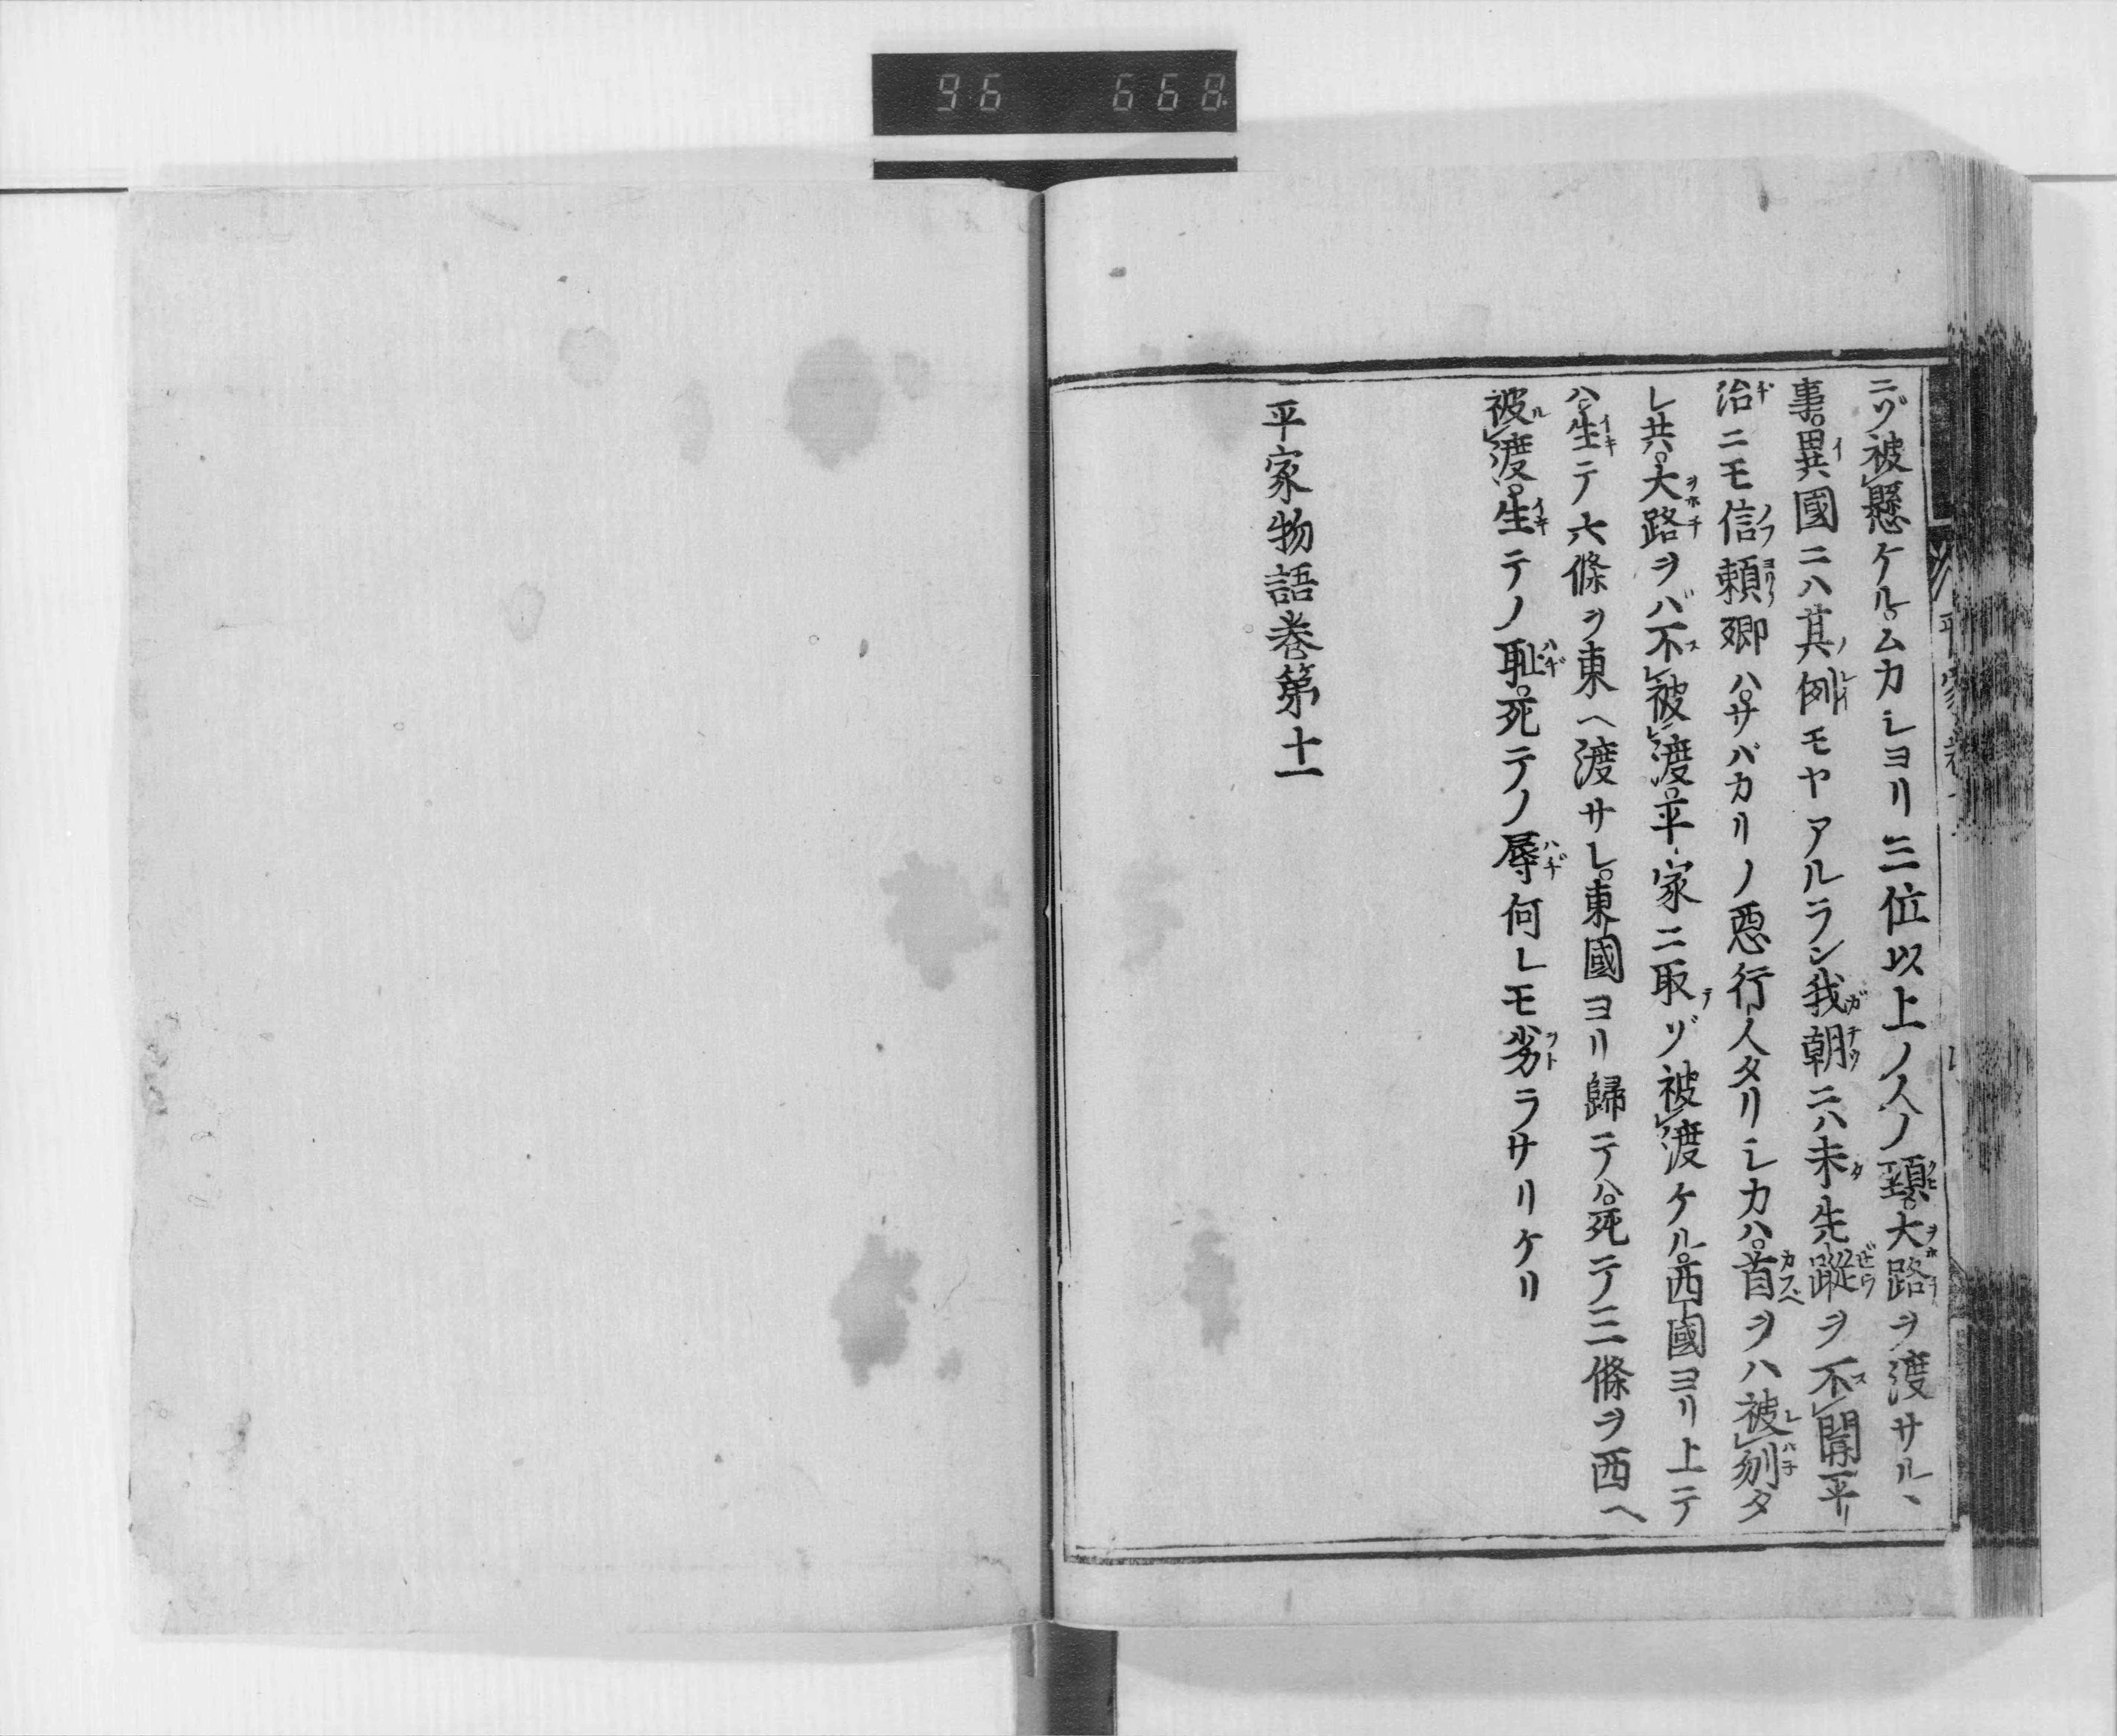 ニゾ被懸ケル。ムカシヨリ三位以上ノ人ノ頸。大路ヲ渡サルヽ
事。異國ニハ其例モヤアルラン我朝ニハ未先蹤ヲ不聞。平
治ニモ信頼卿ハ。サバカリノ惡行人タリシカハ。首ヲハ被刎タ
レ共。大路ヲバ不被渡。平家ニ取ゾ被渡ケル。西國ヨリ上テ
ハ。生テ六條ヲ東ヘ渡サレ。東國ヨリ歸テハ。死テ三條ヲ西ヘ
被渡。生テノ恥。死テノ辱何レモ劣ラサリケリ
平家物語巻第十一
96 668